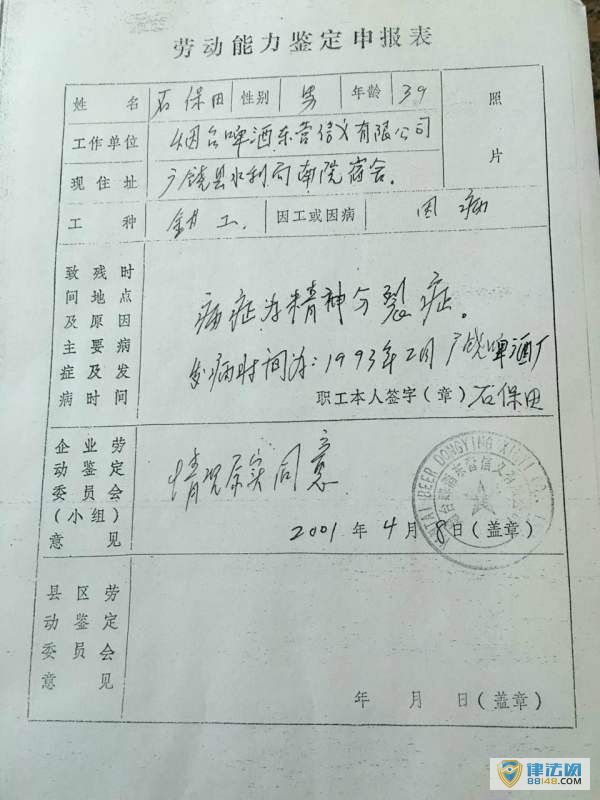 劳动能力鉴定申报表
姓名 石保田 性别 男 年龄 39 照片
工作单位 烟台啤酒东营信义有限公司
现住址 广饶县水利局南院宿舍.
工种 钳工. 因工或因病 因病
致残时间地点及原因主要病症及发病时间
病症为精神分裂症.
发病时间为:1993年2月广饶啤酒厂
职工本人签字(章) 石保田
企业劳动鉴定委员会(小组)意见
情况属实同意
2001年4月8日(盖章)
县区劳动鉴定委员会意见
年 月 日(盖章)
律法网
88148.COM